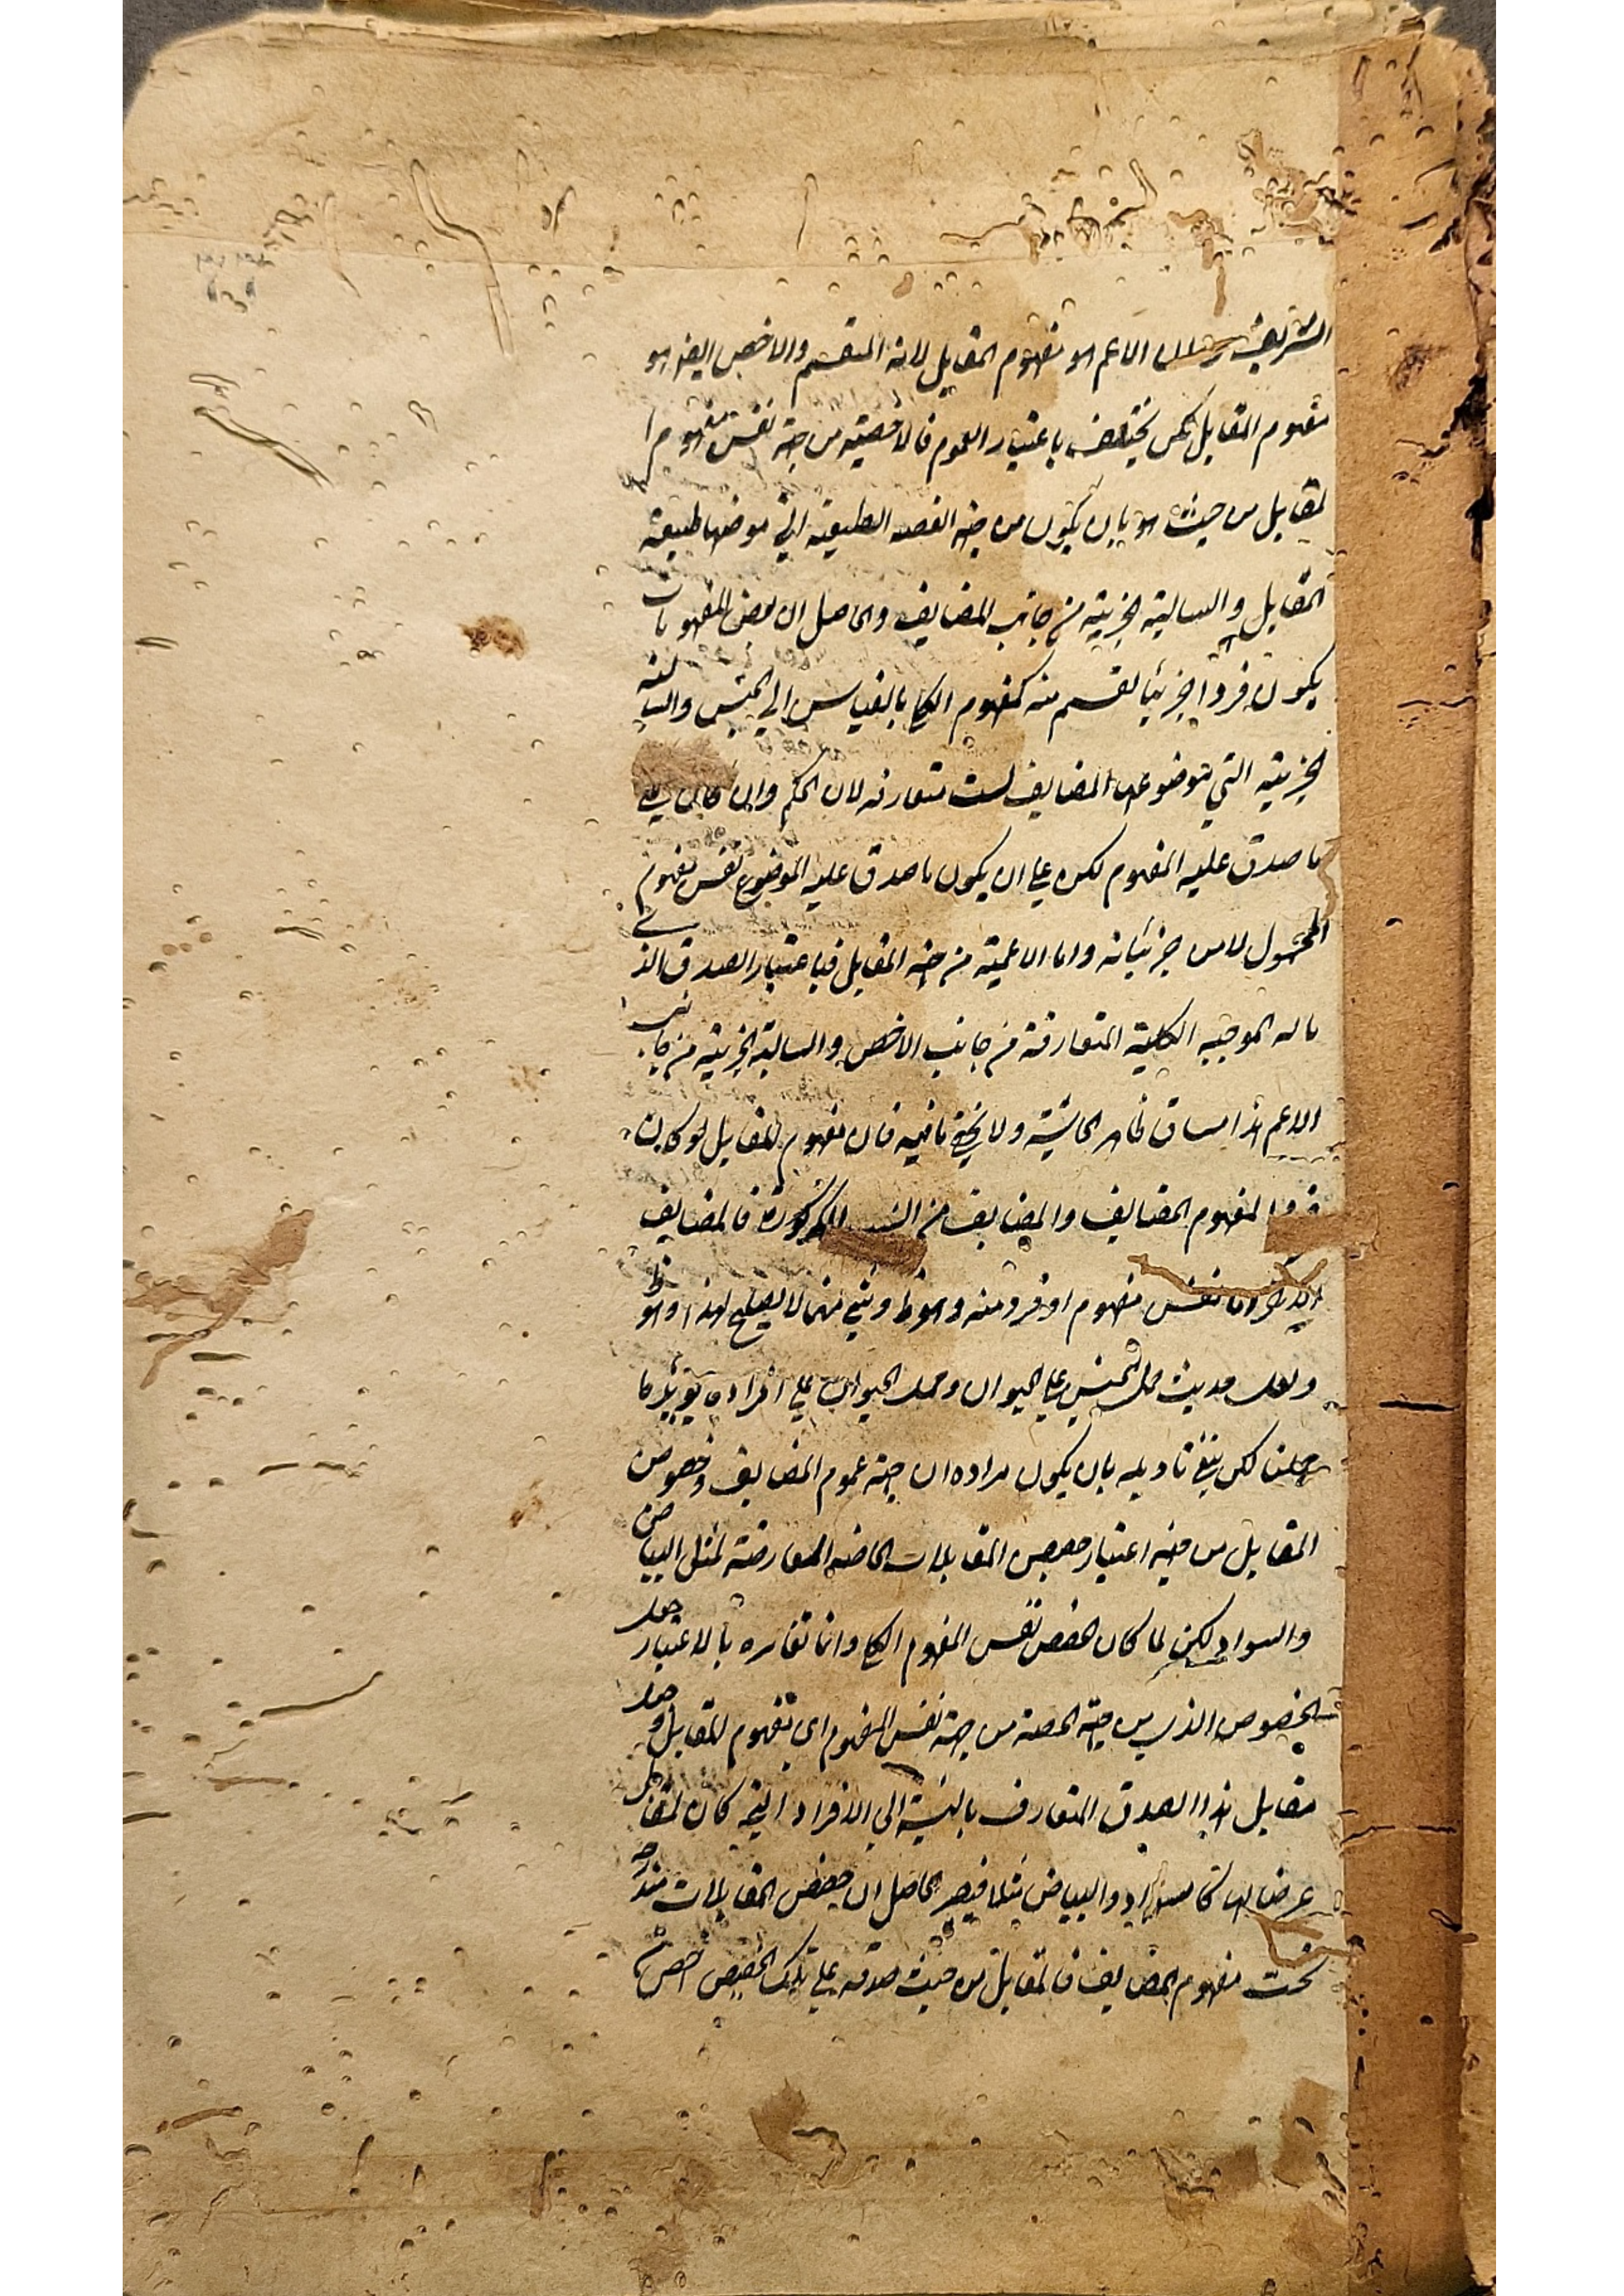 الشريفة الاعم هو مفهوم المقابل لانه المقسم والاخص ايضا هو
مفهوم المقابل لكن يختلف باعتبار العموم فالاخصية من جهة نفس مفهوم ا
لمقابل من حيث هو بان يكون من جهة القضية الطبيعية التي موضوعها طبيعة
المقابل والسالبة الجزئية من جانب المضايف والحاصل ان بعض المفهومات
يكون فردا جزئيا لقسم منه كمفهوم الكلي بالقياس الى الجنس والسالبة
الجزئية التي موضوعها المضايف ليست متعارفة لان الحكم وان كان على
ما صدق عليه المفهوم لكن على ان يكون ما صدق عليه الموضوع نفس مفهوم
المحمول لا من جزئياته واما الاعمية من جهة المقابل فباعتبار الصدق الذي
ماله الموجبة الكلية المتعارفة من جانب الاخص والسالبة الجزئية من جانب
الاعم هذا مساق ظاهر الحاشية ولا يخفى ما فيه فان مفهوم المقابل لو كان
فردا لمفهوم المضايف والمضايف من المذكورة فالمضايف
اما نفس مفهوم او فرد منه وهو ظ وشيء منهما لا يصلح لهذا وهو ظ
ولعل حديث حمل الجنس على الحيوان وحمل الحيوان على افراده يؤيد ما
قلنا لكن ينبغي تاويله بان يكون مراده ان جهة عموم المضايف وخصوص
المقابل من جهة اعتبار حصص المقابلات الخاصة العارضة لمثل البياض
والسواد لكن لما كان الحصص نفس المفهوم الكلي وانما تغايره بالاعتبار جعل
الخصوص الذي من جهة الحصة من جهة نفس المفهوم اي مفهوم المقابل وجعل
مقابل هذا الصدق المتعارف بالنسبة الى الافراد التي كان المقابل
عرضا لها كالسواد والبياض مثلا فيصير الحاصل ان حصص المقابلات مندرجة
تحت مفهوم المضايف فالمقابل من حيث صدقه على تلك الحصص اخص